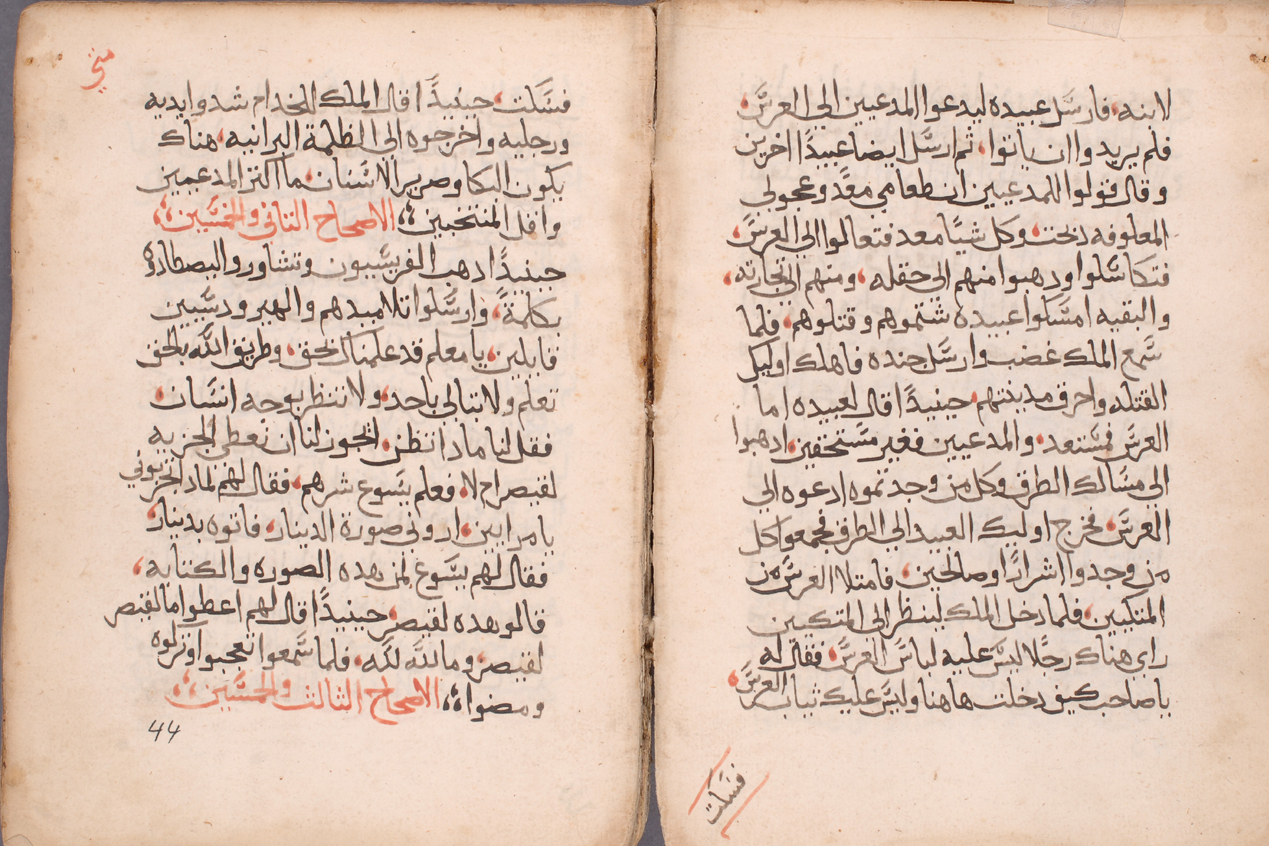 لابنه، فارسَل عبيده ليدعوا المدعيين الي العرسَ،
فلم يريدوا ان ياتوا، ثم ارسَل ايضا عبيدًا اخرين
وقال قولوا للمدعيين ان طعامي معَد وعجولي
المعلوفه دبحت، وكل شيًا معد فتعالوا الي العرسَ،
فتكاسَلوا ودهبوا منهم الى حقله، ومنهم الى تجارته،
والبقيه امسَكوا عبيده شتموهم وقتلوهم، فلما
سَمع الملك غضب وارسَل جنده فاهلك اوليك
القتله واحرق مدينتهم، حينيدًا قال لعبيده اما
العرسَ فمسَتعد، والمدعيين فغير مسَتحقين، ادهبوا
الى مسَالك الطرق وكل من وجدتموه ادعوه الي
العرسَ، فخرج اوليك العبيد الي الطرق فجمعوا كل
من وجدوا اشرارًا وصالحين، فامتلا العرسَ من
المتكيين، فلما دخل الملك لينظر الى المتكيين
راي هناك رجلًا ليسَ عليه لباسَ العرسَ، فقال له
ياصاحب كيف دخلت هاهنا وليسَ عليك ثياب العرسَ،
فسَكت
فسَكت، حينيدًا قال الملك للخدام شدوا يديه
ورجليه واخرجوه الى الظلمة البرانيه، هناك
يكون البكا وصرير الاسَنان، ما اكتر المدعيين
واقل المنتخبين؛ الاصحاح التاني والخمسَين؛
حينيدًا دهب الفريسَيون وتشاوروا ليصطادوه
بكلمةً، وارسَلوا تلاميدهم والهيرودسَيين
قايلين، يا معلم قد علمنا انك محق، وطريق الله بالحق
تعلم ولا تبالي باحد، ولا تنظر بوجه انسَان،
فقل لنا مادا تظن، ايجوز لنا ان نعطى الجزيه
لقيصر ام لا، فعلم يسَوع شرهم، فقال لهم لماد اتجربوني
يا مرايين، اروني صورة الدينار، فاتوه بدينار،
فقال لهم يسَوع لمن هده الصوره والكتابه،
قالو هده لقيصر، حينيدًا قال لهم اعطوا ما لقيصر
لقيصر، وما لله لله، فلما سَمعوا تعجبوا وتركوه
ومضوا؛ الاصحاح الثالث والخمسَين؛
44